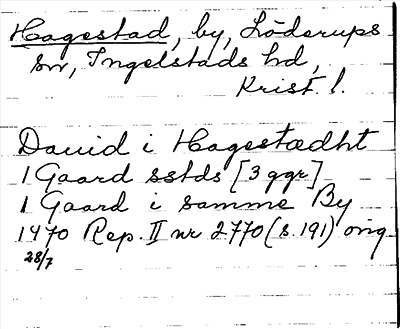 Hagestad, by, Löderups
sn, Ingelstads hd,
Krist. l.
David i Hagestædht
1 Gaard sstds [3 ggr]
1 Gaard i samme By
1470 Rep. II nr 2770 (s. 191) orig
28/7